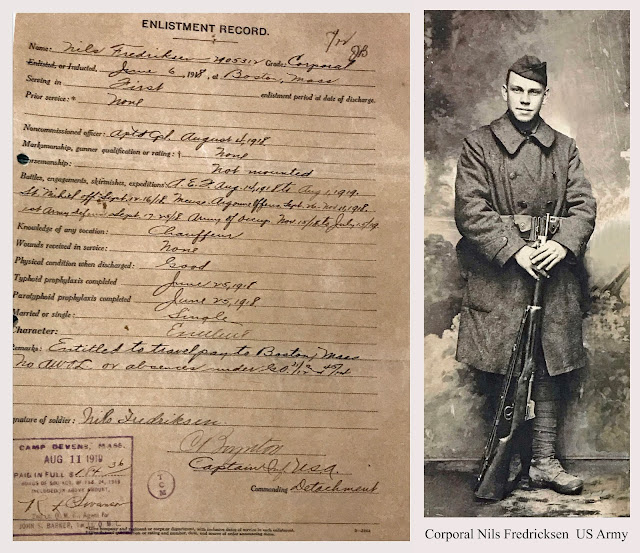 ENLISTMENT RECORD.
Name: Nils Fredriksen Grade: Corporal
Enlisted, or Inducted, June 6, 1918, at Boston, Mass
Serving in First enlistment period at date of discharge.
Prior service: * None
Noncommissioned officer: Aptd Cpl. August 2, 1918
Marksmanship, gunner qualification or rating: † None
Horsemanship: Not mounted
Battles, engagements, skirmishes, expeditions: A.E.F. Aug. 14, 1918 to Aug 1, 1919.
St. Mihiel off. Sept. 12-16/18. Meuse Argonne Offens. Sept. 26-Nov. 11, 1918.
Army of Occup. Nov.
Knowledge of any vocation: Chauffeur
Wounds received in service: None
Physical condition when discharged: Good
Typhoid prophylaxis completed June 25, 1918
Paratyphoid prophylaxis completed June 25, 1918
Married or single: Single
Character: Excellent
Remarks: Entitled to travel pay to Boston, Mass
No AWOL or absences under G.O.
Signature of soldier: Nils Fredriksen
C Boynton
Captain Inf USA.
Commanding Detachment
CAMP DEVENS, MASS.
AUG 11 1919
PAID IN FULL $
T
C
M
Corporal Nils Fredricksen US Army